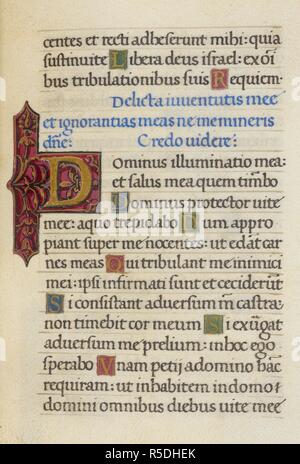 centes et recti adheserunt mihi: quia
sustinui te Libera deus israel: ex oi
bus tribulationibus suis Requiem.
Delicta iuventutis mee
et ignorantias meas ne memineris
dne: Credo videre:
Dominus illuminatio mea:
et salus mea quem timbo
Dominus protector vite
mee: a quo trepidabo Dum appro
piant super me nocentes: ut edat car
nes meas Qui tribulant me inimici
mei: ipsi infirmati sunt et ceciderut
Si consistant adversum me castra:
non timebit cor meum Si exurgat
adversum me prelium: in hoc ego
sperabo Unam petij a domino hac
requiram: ut inhabitem in domo
domini omnibus diebus vite mee
alamy stock photo
R5DHEK